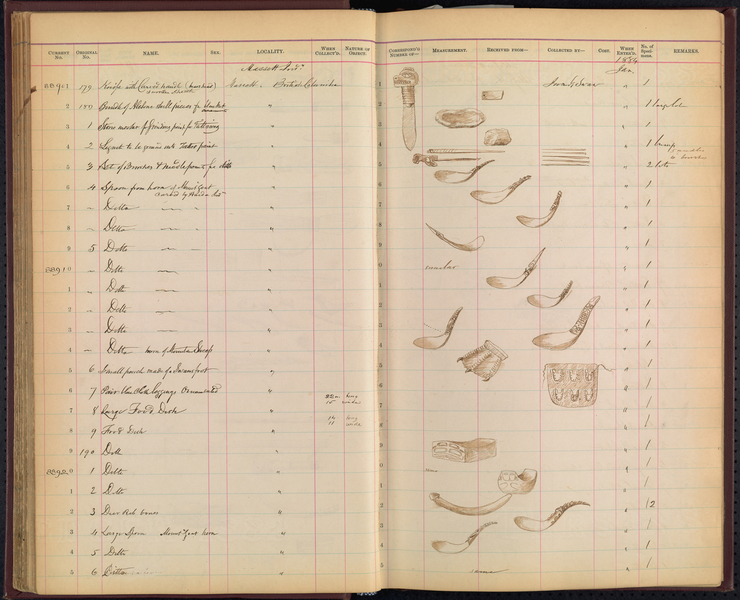 CURRENT No. ORIGINAL No. NAME. SEX. LOCALITY. WHEN COLLECT'D. NATURE OF OBJECT. CORRESPOND'G NUMBER OF— MEASUREMENT. RECEIVED FROM— COLLECTED BY— COST. WHEN ENTER'D. No. of Speci-mens. REMARKS.
1884
Massett Ind's
Jan.
88901 179 Knife with Carved handle Massett British Columbia James G Swan " 1
2 180 of Abalone shell pieces for " 1
3 1 Stone mortar for grinding paint for Tattooing " 1
4 2 to be ground into Tattoo paint " 1
5 3 Set of Brushes & needle points for ditto " 2
6 4 Spoon from horn of Mount Goat " 1
Carved by
7 " Ditto " 1
8 " Ditto " 1
9 5 Ditto " 1
88910 " Ditto " similar 1
1 " Ditto " 1
2 " Ditto " 1
3 " Ditto " 1
4 " Ditto horn of Mountain Sheep " 1
5 6 Small pouch made of Swans foot " 1
6 7 Pair Blue Cloth leggings Ornamented " 1
long
7 8 Large Food Dish " wide 1
14 long
8 9 Food Dish " 11 wide 1
9 190 Ditto " 1
88920 1 Ditto " 1
1 2 Ditto " 1
2 3 Deer Rib bones " 12
3 4 Large Spoon Mount Goat horn " 1
4 5 Ditto " 1
5 6 Ditto " 1